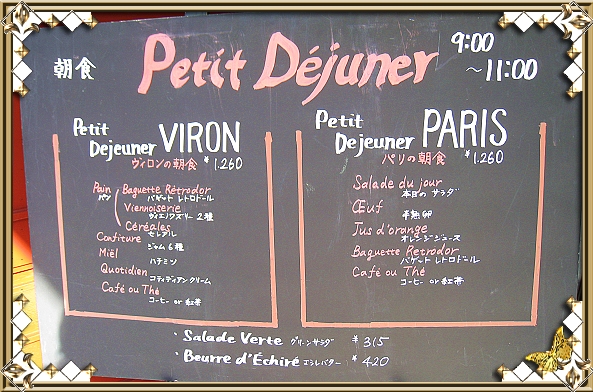 朝食 Petit Déjuner 9:00
～11:00
Petit
Dejeuner VIRON
ヴィロンの朝食 ¥1.260
Pain Baguette Rétrodor
パン バゲット レトロドール
Viennoiserie
ヴィエノワズリー 2種
Céréales
セレアル
Confiture
ジャム 6種
Miël
ハチミツ
Quotidien
コティディアンクリーム
Café ou Thé
コーヒー or 紅茶
Petit
Dejeuner PARIS
パリの朝食 ¥1.260
Salade du jour
本日のサラダ
Œuf
半熟卵
Jus d'orange
オレンジジュース
Baguette Retrodor
バゲット レトロドール
Café ou Thé
コーヒー or 紅茶
・Salade Verte グリーンサラダ ¥315
・Beurre d'Échiré エシレバター ¥420